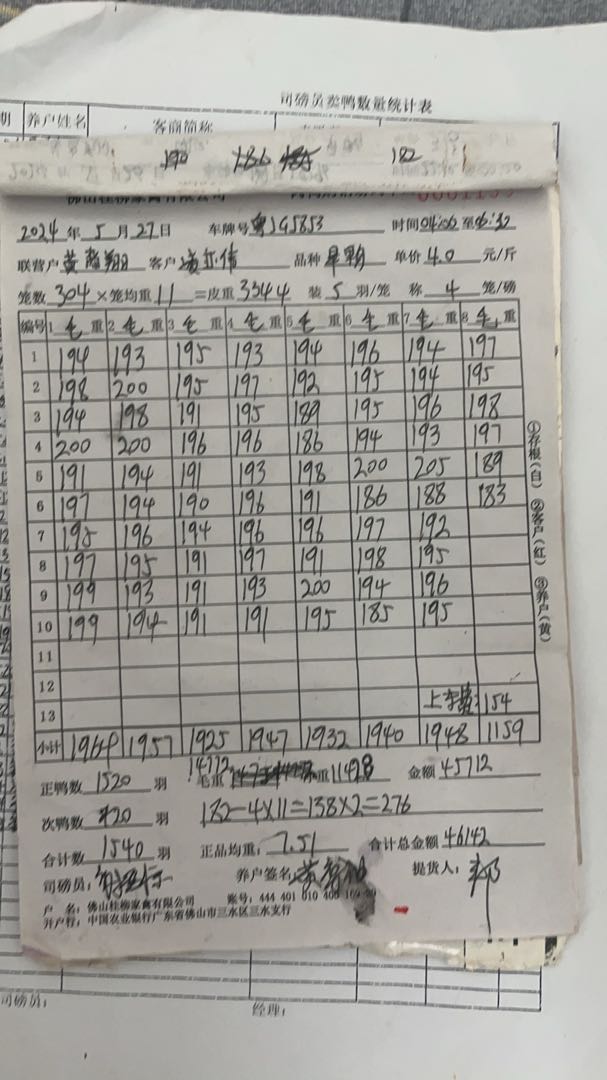 司磅员卖鸭数量统计表
期 养户姓名 客商简称
190 186 182
2024 年 5 月 27 日 车牌号 粤JG5853 时间 04:00 至 06:32
联营户 黄 翔 客户 伟 品种 单价 4.0 元/斤
笼数 304 × 笼均重 11 = 皮重 3344 装 5 羽/笼 称 4 笼/磅
编号 1 毛 重 2 毛 重 3 毛 重 4 毛 重 5 毛 重 6 毛 重 7 毛 重 8 毛 重
1 194 193 195 193 194 196 194 197
2 198 200 195 197 192 195 194 195
3 194 198 191 195 189 195 196 198
4 200 200 196 196 186 194 193 197
5 191 194 191 193 198 200 205 189
6 197 194 190 196 191 186 188 183
7 195 196 194 196 196 197 192
8 197 195 191 197 191 198 195
9 199 193 191 193 200 194 196
10 199 194 191 191 195 185 195
11
12
13 上车费: 154
小计 1964 1957 1925 1947 1932 1940 1948 1159
正鸭数 1520 羽 毛重 14772 重 11428 金额 45712
次鸭数 20 羽 182-4×11=138×2=276
合计数 1540 羽 正品均重: 7.51 合计总金额 46142
司磅员: 养户签名: 提货人:
户 名: 佛山桂柳家禽有限公司 账号: 444 401 010 400 169
开户行: 中国农业银行广东省佛山市三水区三水支行
①存根(白) ②客户(红) ③养户(黄)
司磅员: 经理: